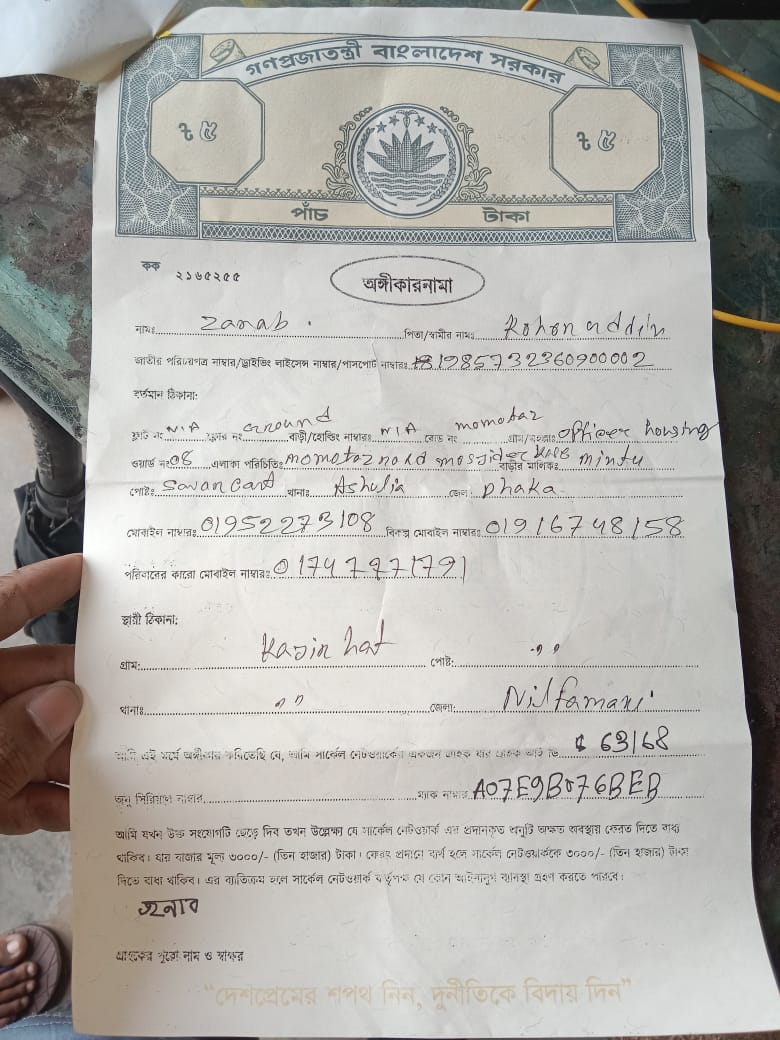 গণপ্রজাতন্ত্রী বাংলাদেশ সরকার
৳ ৫ ৳ ৫
পাঁচ টাকা
কক ২১৬৫২৫৫
অঙ্গীকারনামা
নামঃ Zanab . পিতা/স্বামীর নামঃ Rohon uddin
জাতীয় পরিচয়পত্র নাম্বার/ড্রাইভিং লাইসেন্স নাম্বার/পাসপোর্ট নাম্বারঃ 1985732360900002
বর্তমান ঠিকানা:
ফ্ল্যাট নং N/A ফ্লোর নং ground বাড়ী/হোল্ডিং নাম্বারঃ N/A রোড নং momotaz গ্রাম/মহল্লাঃ officer housing
ওয়ার্ড নং 08 এলাকা পরিচিতিঃ momotaz road mosjider বাড়ীর মালিকঃ mintu
পোষ্টঃ Savan cant থানাঃ Ashulia জেলাঃ Dhaka
মোবাইল নাম্বারঃ 01952273108 বিকল্প মোবাইল নাম্বারঃ 01916748158
পরিবারের কারো মোবাইল নাম্বারঃ 01747971791
স্থায়ী ঠিকানা:
গ্রাম: Kazir hat পোষ্ট: ,,
থানাঃ ,, জেলা: Nilfamari
আমি এই মর্মে অঙ্গীকার করিতেছি যে, আমি সার্কেল নেটওয়ার্কের একজন গ্রাহক যার গ্রাহক আই ডি 63168
অনু সিরিয়াল নাম্বার ম্যাক নাম্বার A07E9B076BEB
আমি যখন উক্ত সংযোগটি ছেড়ে দিব তখন উল্লেক্ষা যে সার্কেল নেটওয়ার্ক এর প্রদানকৃত অনুটি অক্ষত অবস্থায় ফেরত দিতে বাধ্য
থাকিব। যার বাজার মূল্য ৩০০০/- (তিন হাজার) টাকা। ফেরৎ প্রদানে ব্যর্থ হলে সার্কেল নেটওয়ার্ককে ৩০০০/- (তিন হাজার) টাকা
দিতে বাধ্য থাকিব। এর ব্যতিক্রম হলে সার্কেল নেটওয়ার্ক কর্তৃপক্ষ যে কোন আইনানুগ ব্যবস্থা গ্রহণ করতে পারবে।
জনাব
গ্রাহকের পুরো নাম ও স্বাক্ষর
“দেশপ্রেমের শপথ নিন, দুর্নীতিকে বিদায় দিন”